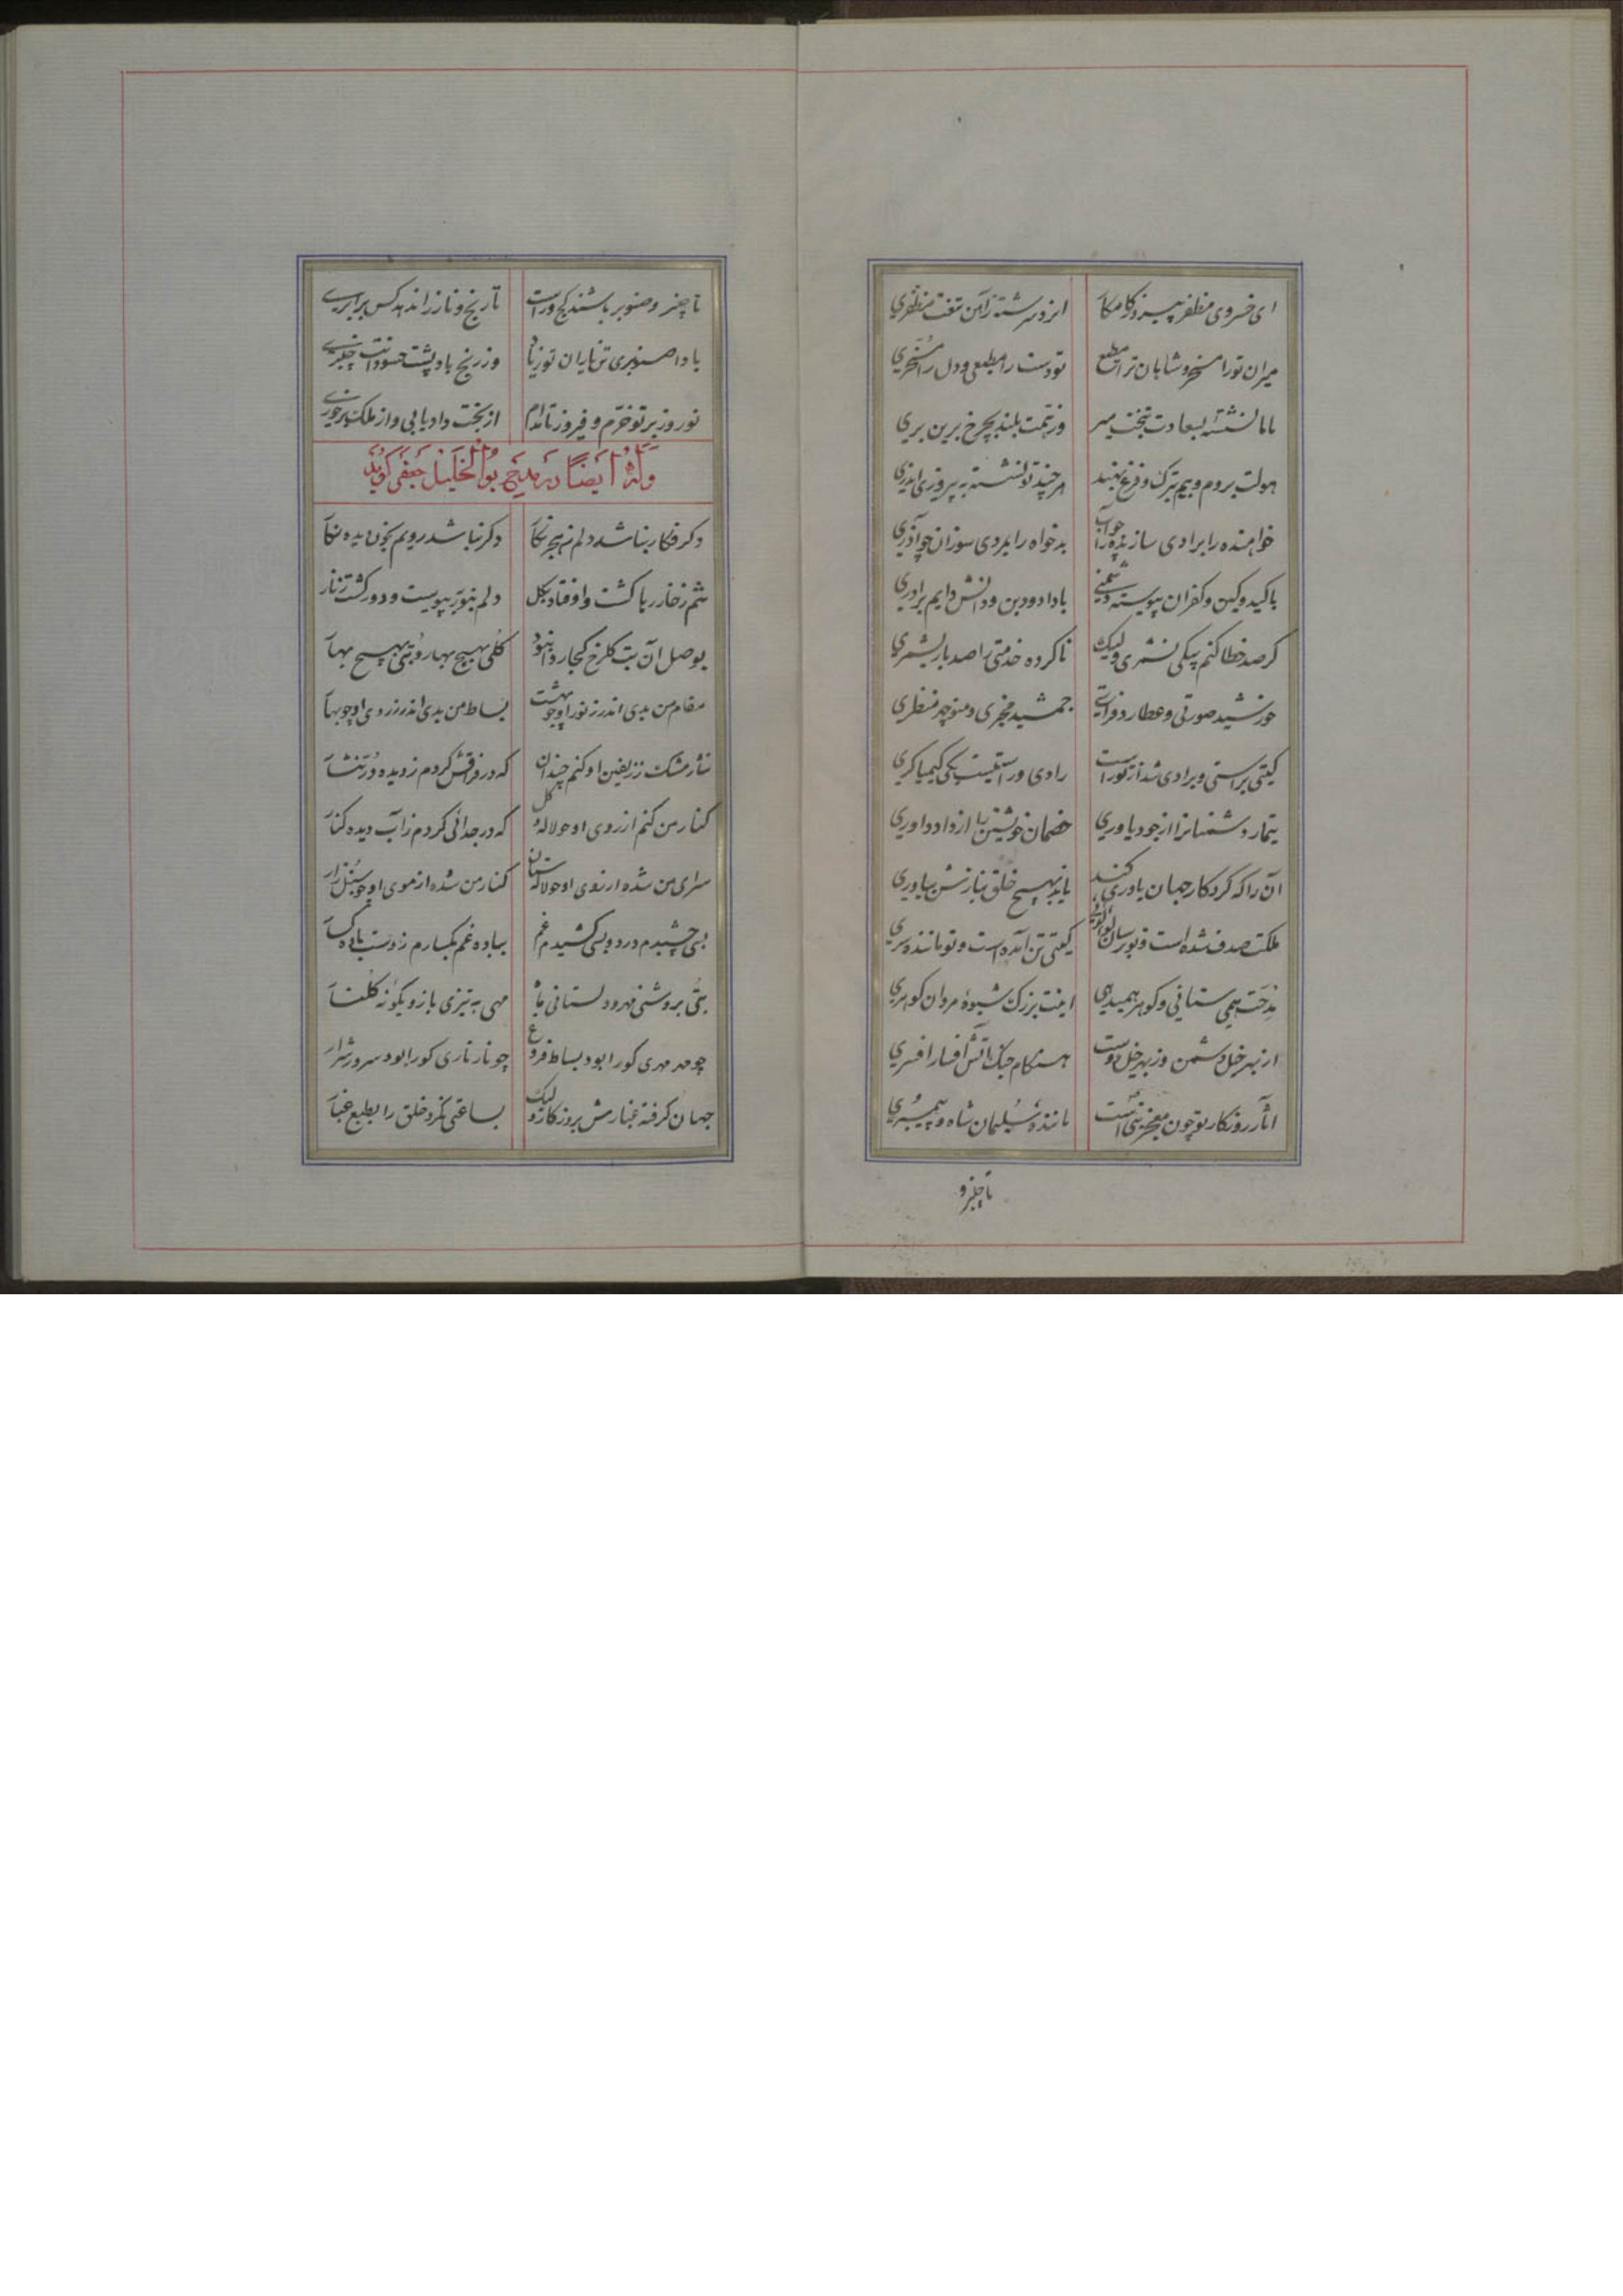 ای خسروی مظفر پیروز کامکار ایزد سرشته ز آهن تفت مظفری
میران تو را مسخر و شاهان ترا مطیع تو دست را مطیعی و دل را مسخری
مانا نشسته بسعادت بتخت میر وز همت بلند بچرخ برین بری
هولت بروم و بیم بترک و فزع بهند هر چند تو نشسته به پیروزی اندری
خواهنده را برادی سازنده چو آب بدخواه را بمردی سوزان چو آذری
با کید و کین و کفران پیوسته دشمنی با داد و دین و دانش دایم برادری
کر صد خطا کنم بیکی نشمری ولیک ناکرده خدمتی را صد بار بشمری
خورشید صورتی و عطارد فراستی جمشید مخبری و منوچهر منظری
کیتی براستی و برادی شد از تو راست رادی و راستیست یکی کیمیاکری
تیمار دشمنانرا از جود یاوری خصمان خویشتن را از داد داوری
آن را که کردکار جهان یاوری کند باید بهیچ خلق نیازش بیاوری
ملکت صدف شده است و تو بر سان لؤلؤئی کیتی تن آمده است و تو ماننده سری
مدحت همی ستانی و کوهر همیدهی اینت بزرک شیوه مردان کوهری
از بهر خیل دشمن وز بهر خیل دوست هنکام جنک آتش افسار افسری
آثار روزکار تو چون معجز نبی است ماننده سلیمان شاه و پیمبری
تا چنبر و
تا چنبر و صنوبر باشند کج و راست تا رنج و ناز زاندهد کس برابری
بادا صنوبری تن یاران تو ز ناز وز رنج باد پشت حسودانت چنبری
نوروز بر تو خرم و فیروز تا مدام از بخت داد یابی و از ملک برخوری
وله ایضا در مدیح بوالخلیل جعفر کوید
دکر فکار نباشد دلم ز هجر نکار دکر نباشد رویم بخون دیده نکار
غم ز خار رها کشت و اوفتاد بکل دلم بنور بپیوست و دور کشت ز نار
بوصل آن بت کلرخ کجا ردا نبود کلی بهیچ بهار و بتی بهیچ بهار
مقام من بدی اندر ز نور او چو بهشت بساط من بدی اندر ز روی او چو بهار
نثار مشک ز زلفین او کنم چندان که در فراقش کردم ز دیده در نثار
کنار من کنم از روی او چو لاله و کل که در جدائی کردم ز آب دیده کنار
سرای من شده از روی او چو لاله ستان کنار من شده از موی او چو سنبل زار
بسی چشیدم درد و بسی کشیدم غم بباده غم بکسارم ز دست باده کسار
بتی بروشنی مهر و دلستانی ماه مهی به تیزی بازو بکونه کلنار
چو مهر مهری کورا بود بساط فروغ چو نار ناری کورا بود سرور شرار
جهان کرفته غبارش بروزکار و لیک بساعتی نکرد خلق را بطبع غبار